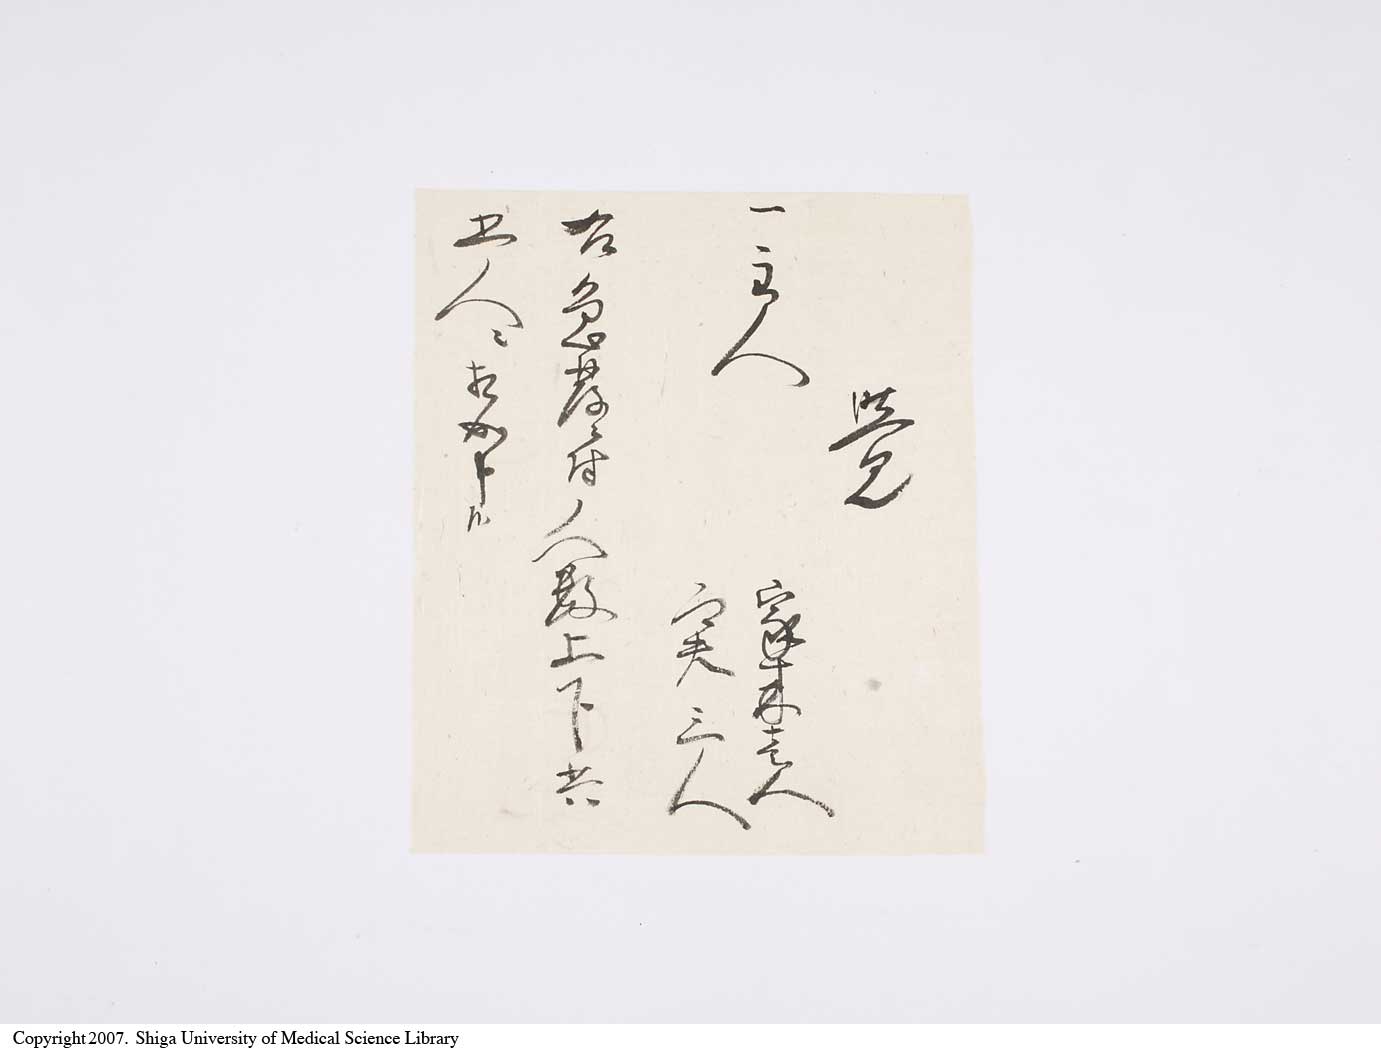 覚
一主人
家来壱人
实三人
右急發之付人数上下共
五人ニ相成申候
Copyright 2007. Shiga University of Medical Science Library